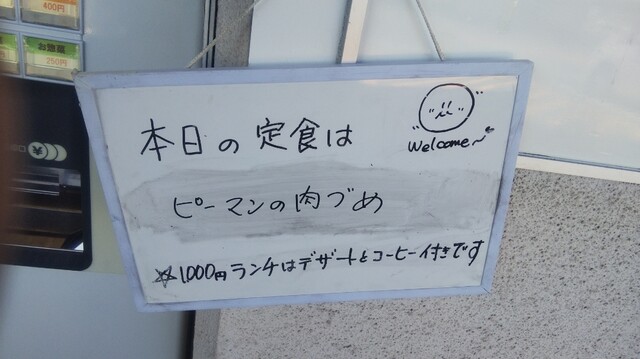 400円
お惣菜
250円
本日の定食は
Welcome~
ピーマンの肉づめ
☆1000円ランチはデザートとコーヒー付きです